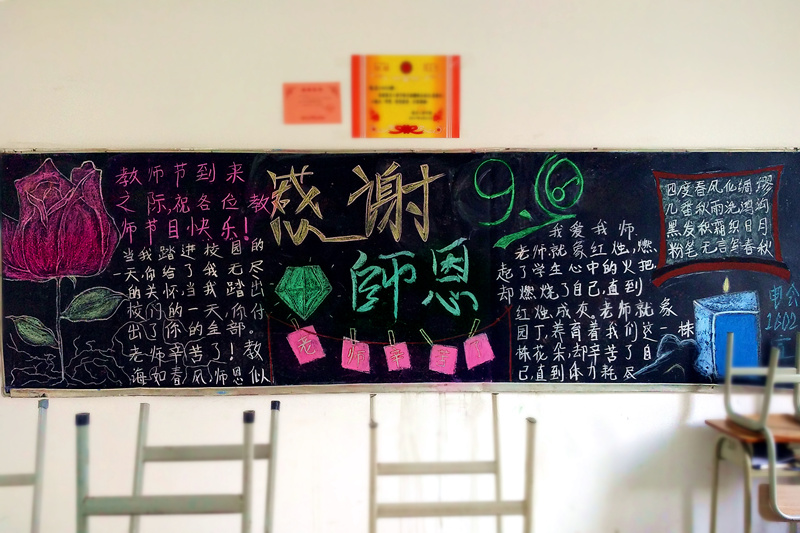 教师节到来
之际,祝各位教
师节目快乐!
当我踏进校园的
一天,你给了我无尽
的关怀.当我踏出
校们的一天,你付
出了你的全部。
老师辛苦了!教
海如春风,师恩似
感谢
師恩
老 师 辛 苦
9.6
我爱我师.
老师就象红烛,燃
起了学生心中的火把,
却燃烧了自己,直到
红烛成灰.老师就象
园丁,养育着我们这一株
株花朵,却辛苦了自
己,直到体力耗尽
四度春风化绸缪
几番秋雨洗鸿沟
黑发积霜织日月
粉笔无言写春秋
1602